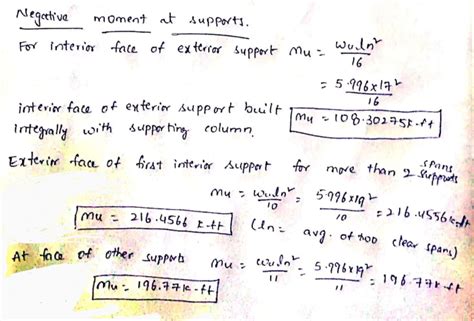 Negative moment at supports.
For interior face of exterior support Mu = wu.ln²/16
= 5.996x17²/16
interior face of exterior support built
integrally with supporting column.
Mu = 108.30275k.ft
Exterior face of first interior support for more than 2 spans supports
Mu = wu.ln²/10 = 5.996x19²/10 = 216.4556k.ft
Mu = 216.4566 k-ft
(ln = avg. of two clear spans)
At face of other supports Mu = wu.ln²/11 = 5.996x19²/11 = 196.77k-ft
Mu = 196.77k-ft